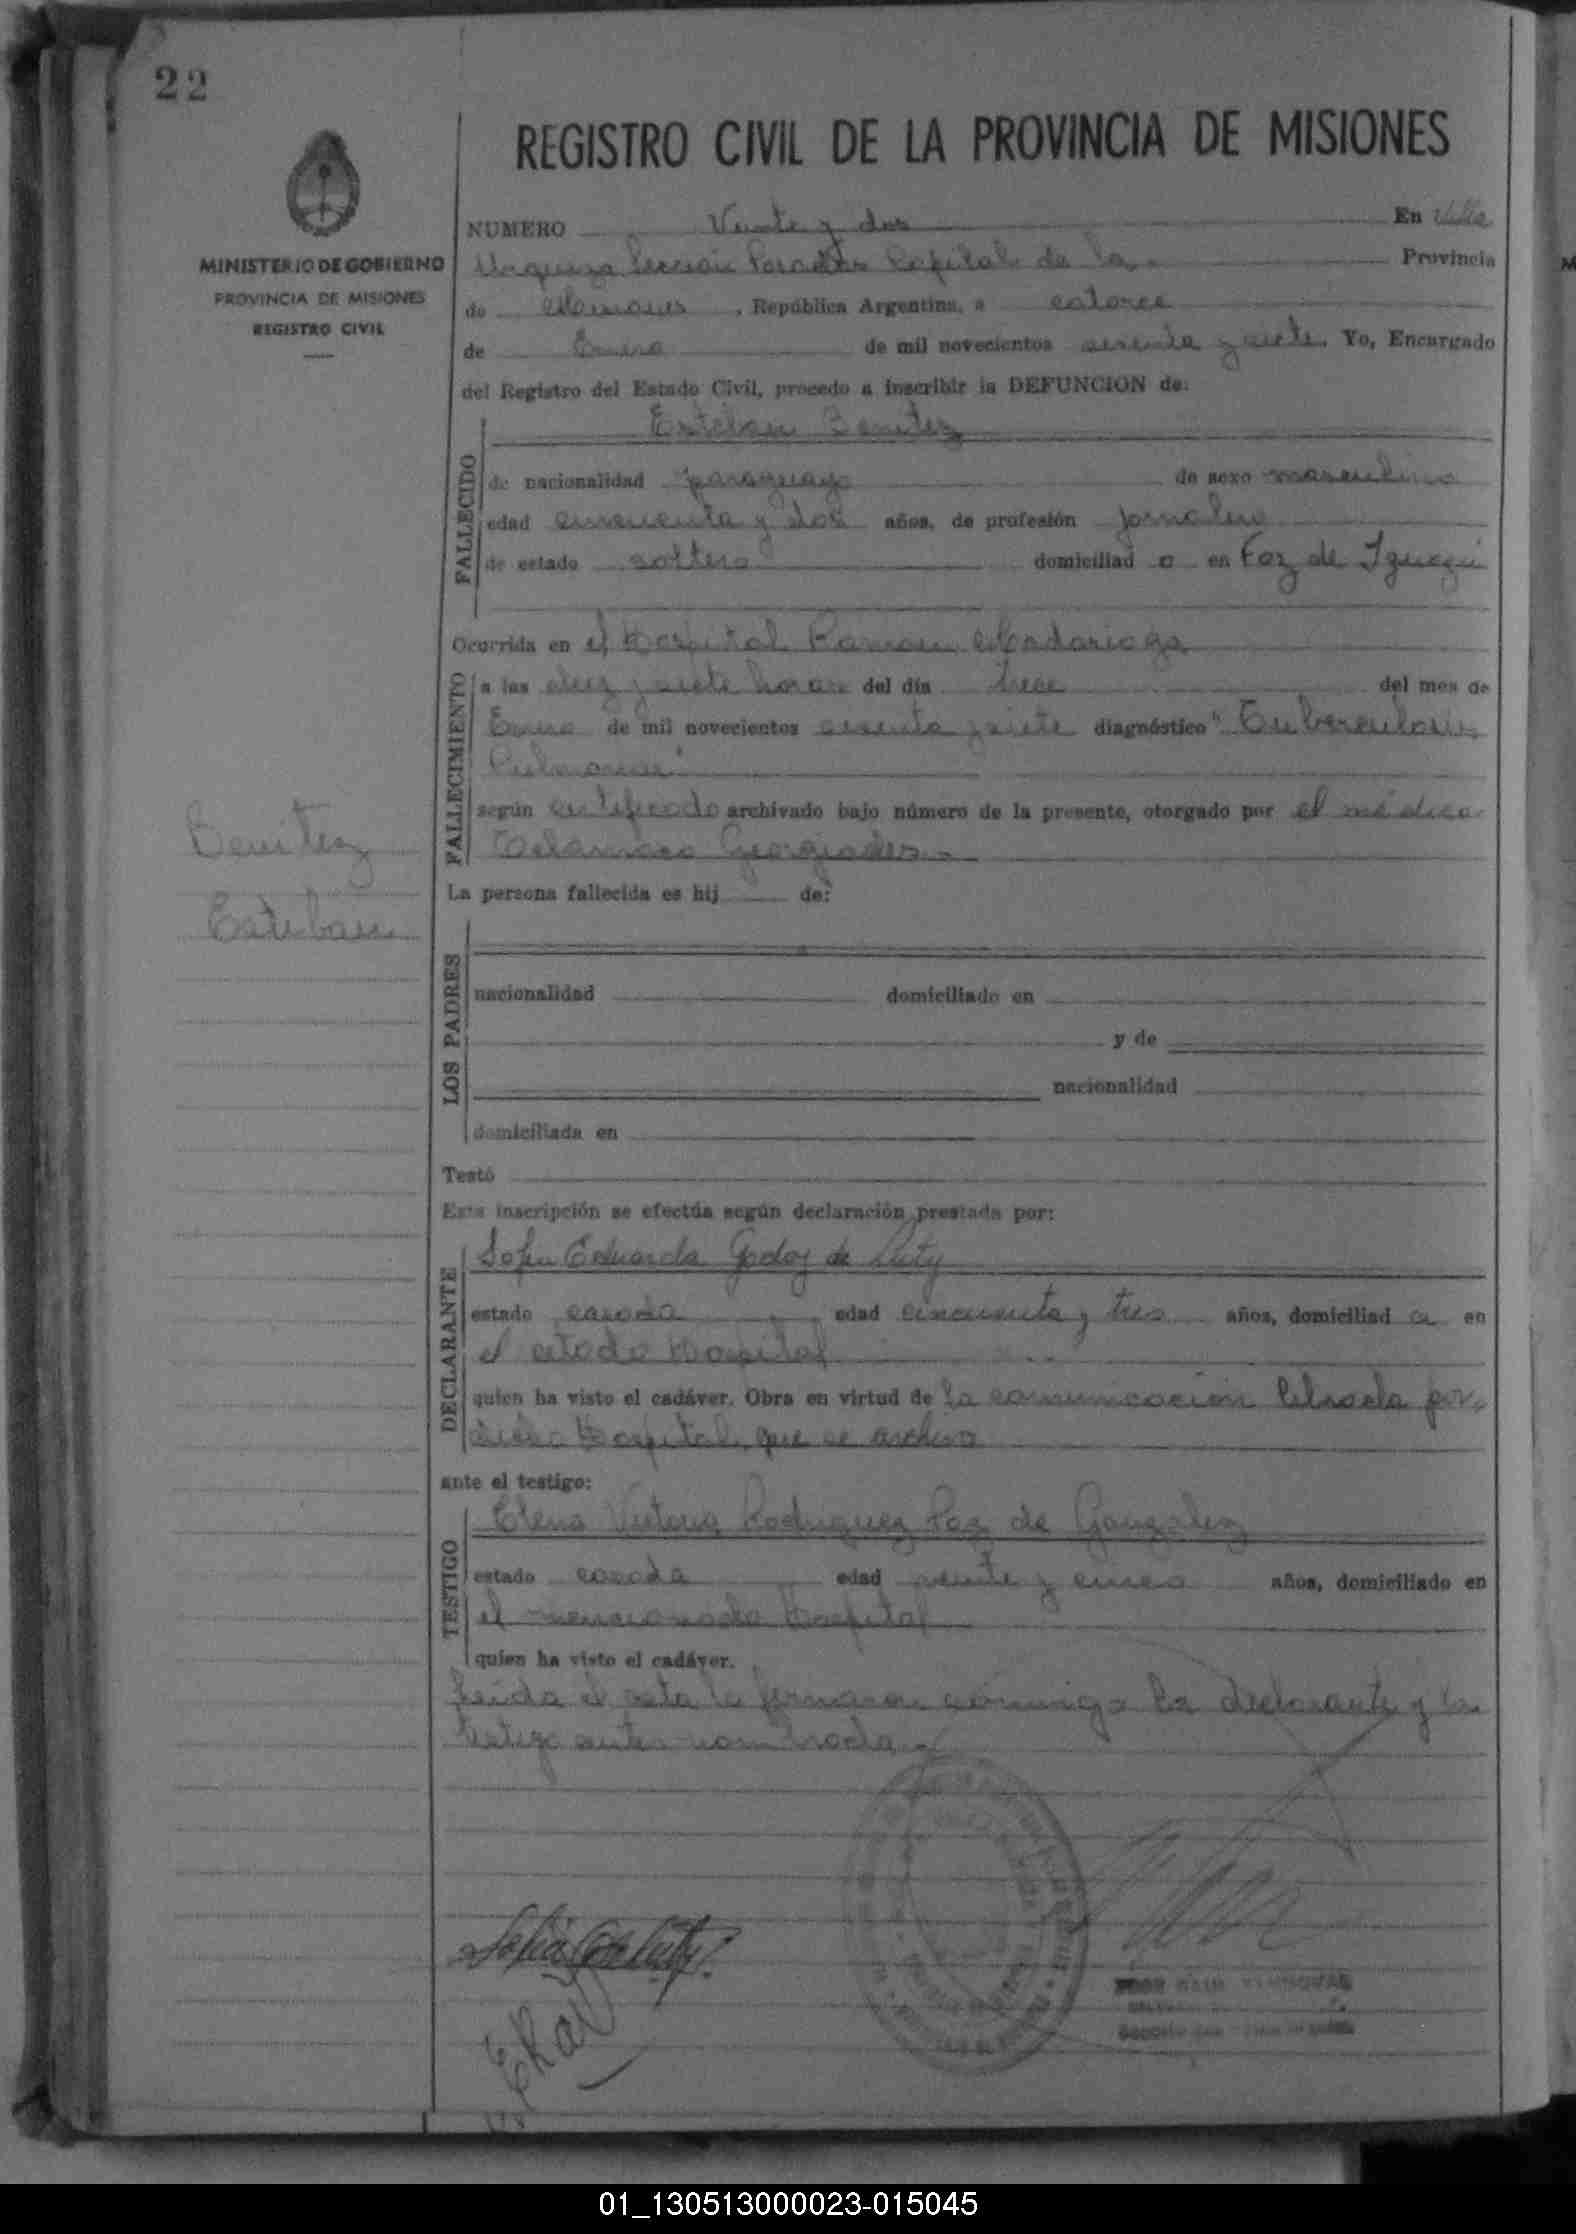 22
REGISTRO CIVIL DE LA PROVINCIA DE MISIONES
MINISTERIO DE GOBIERNO
PROVINCIA DE MISIONES
REGISTRO CIVIL
NUMERO Veinte y dos En Villa
Urquiza Sección Posadas Capital de la Provincia
de Misiones, República Argentina, a catorce
de Enero de mil novecientos sesenta y siete. Yo, Encargado
del Registro del Estado Civil, procedo a inscribir la DEFUNCION de:
FALLECIDO
Esteban Benitez
de nacionalidad paraguayo de sexo masculino
edad cincuenta y dos años, de profesión jornalero
de estado soltero domiciliad o en Foz de Iguazú
Ocurrida en el Hospital Ramon Madariaga
FALLECIMIENTO
a las diez y siete horas del día trece del mes de
Enero de mil novecientos sesenta y siete diagnóstico "Tuberculosis
Pulmonar"
según certificado archivado bajo número de la presente, otorgado por el médico
Telamaco Georgiades.-
Benitez
Esteban
La persona fallecida es hij de:
LOS PADRES
nacionalidad domiciliado en
y de
nacionalidad
domiciliada en
Testó
Esta inscripción se efectúa según declaración prestada por:
DECLARANTE
Sofia Eduarda Godoy de
estado casada edad cincuenta y tres años, domiciliad a en
el citado Hospital
quien ha visto el cadáver. Obra en virtud de la comunicación librada por
dicho Hospital, que se archiva
ante el testigo:
TESTIGO
Elena Victoria Rodriguez Paz de Gonzalez
estado casada edad veinte y cinco años, domiciliado en
el mencionado Hospital
quien ha visto el cadáver.
Leida el acta la firmaron conmigo la declarante y la
testigo antes nombrada
01_130513000023-015045